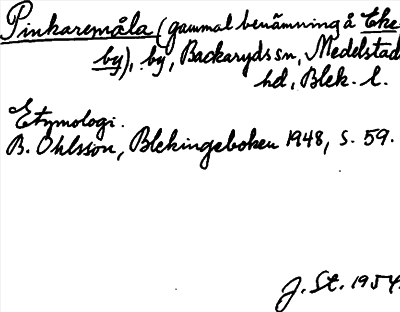 Pinkaremåla (gammal benämning å Eke-
by), by, Backaryds sn, Medelstad
hd, Blek. l.
Etymologi.
B. Ohlsson, Blekingeboken 1948, s. 59.
J. St. 1954.